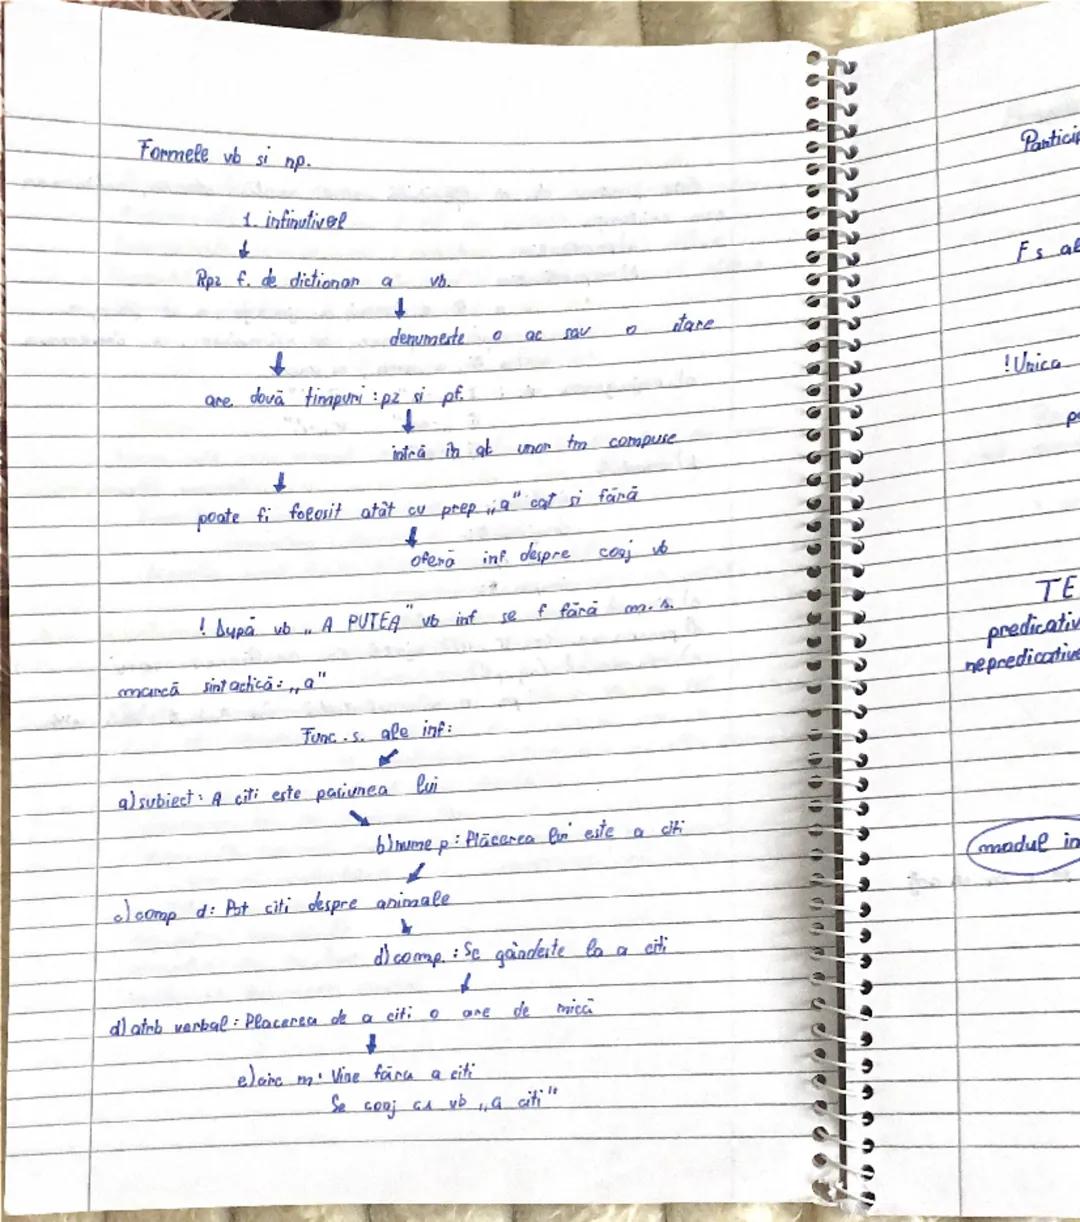 Formele vb si np.
1. infinutivel
Rpz f. de dictionar a vb.
denumeste o ac sau o stare
are două timpuri : pz si pf.
intră în al unor tm compuse
poate fi folosit atât cu prep „a" cat si fără
oferă inf. despre conj vb
! După vb „ A PUTEA" vb inf se f fără m. s.
marcă sintactică: „a"
Func. s. ale inf:
a) subiect: A citi este pasiunea lui
b) nume p: Plăcerea lui este a citi
c) comp d: Pot citi despre animale
d) comp. : Se gândeste la a citi
d) atrb verbal: Placerea de a citi o are de mică
e) circ m: Vine fără a citi
Se conj ca vb „a citi"
Particip
Fs al
! Unica
TE
predicativ
nepredicative
modul in